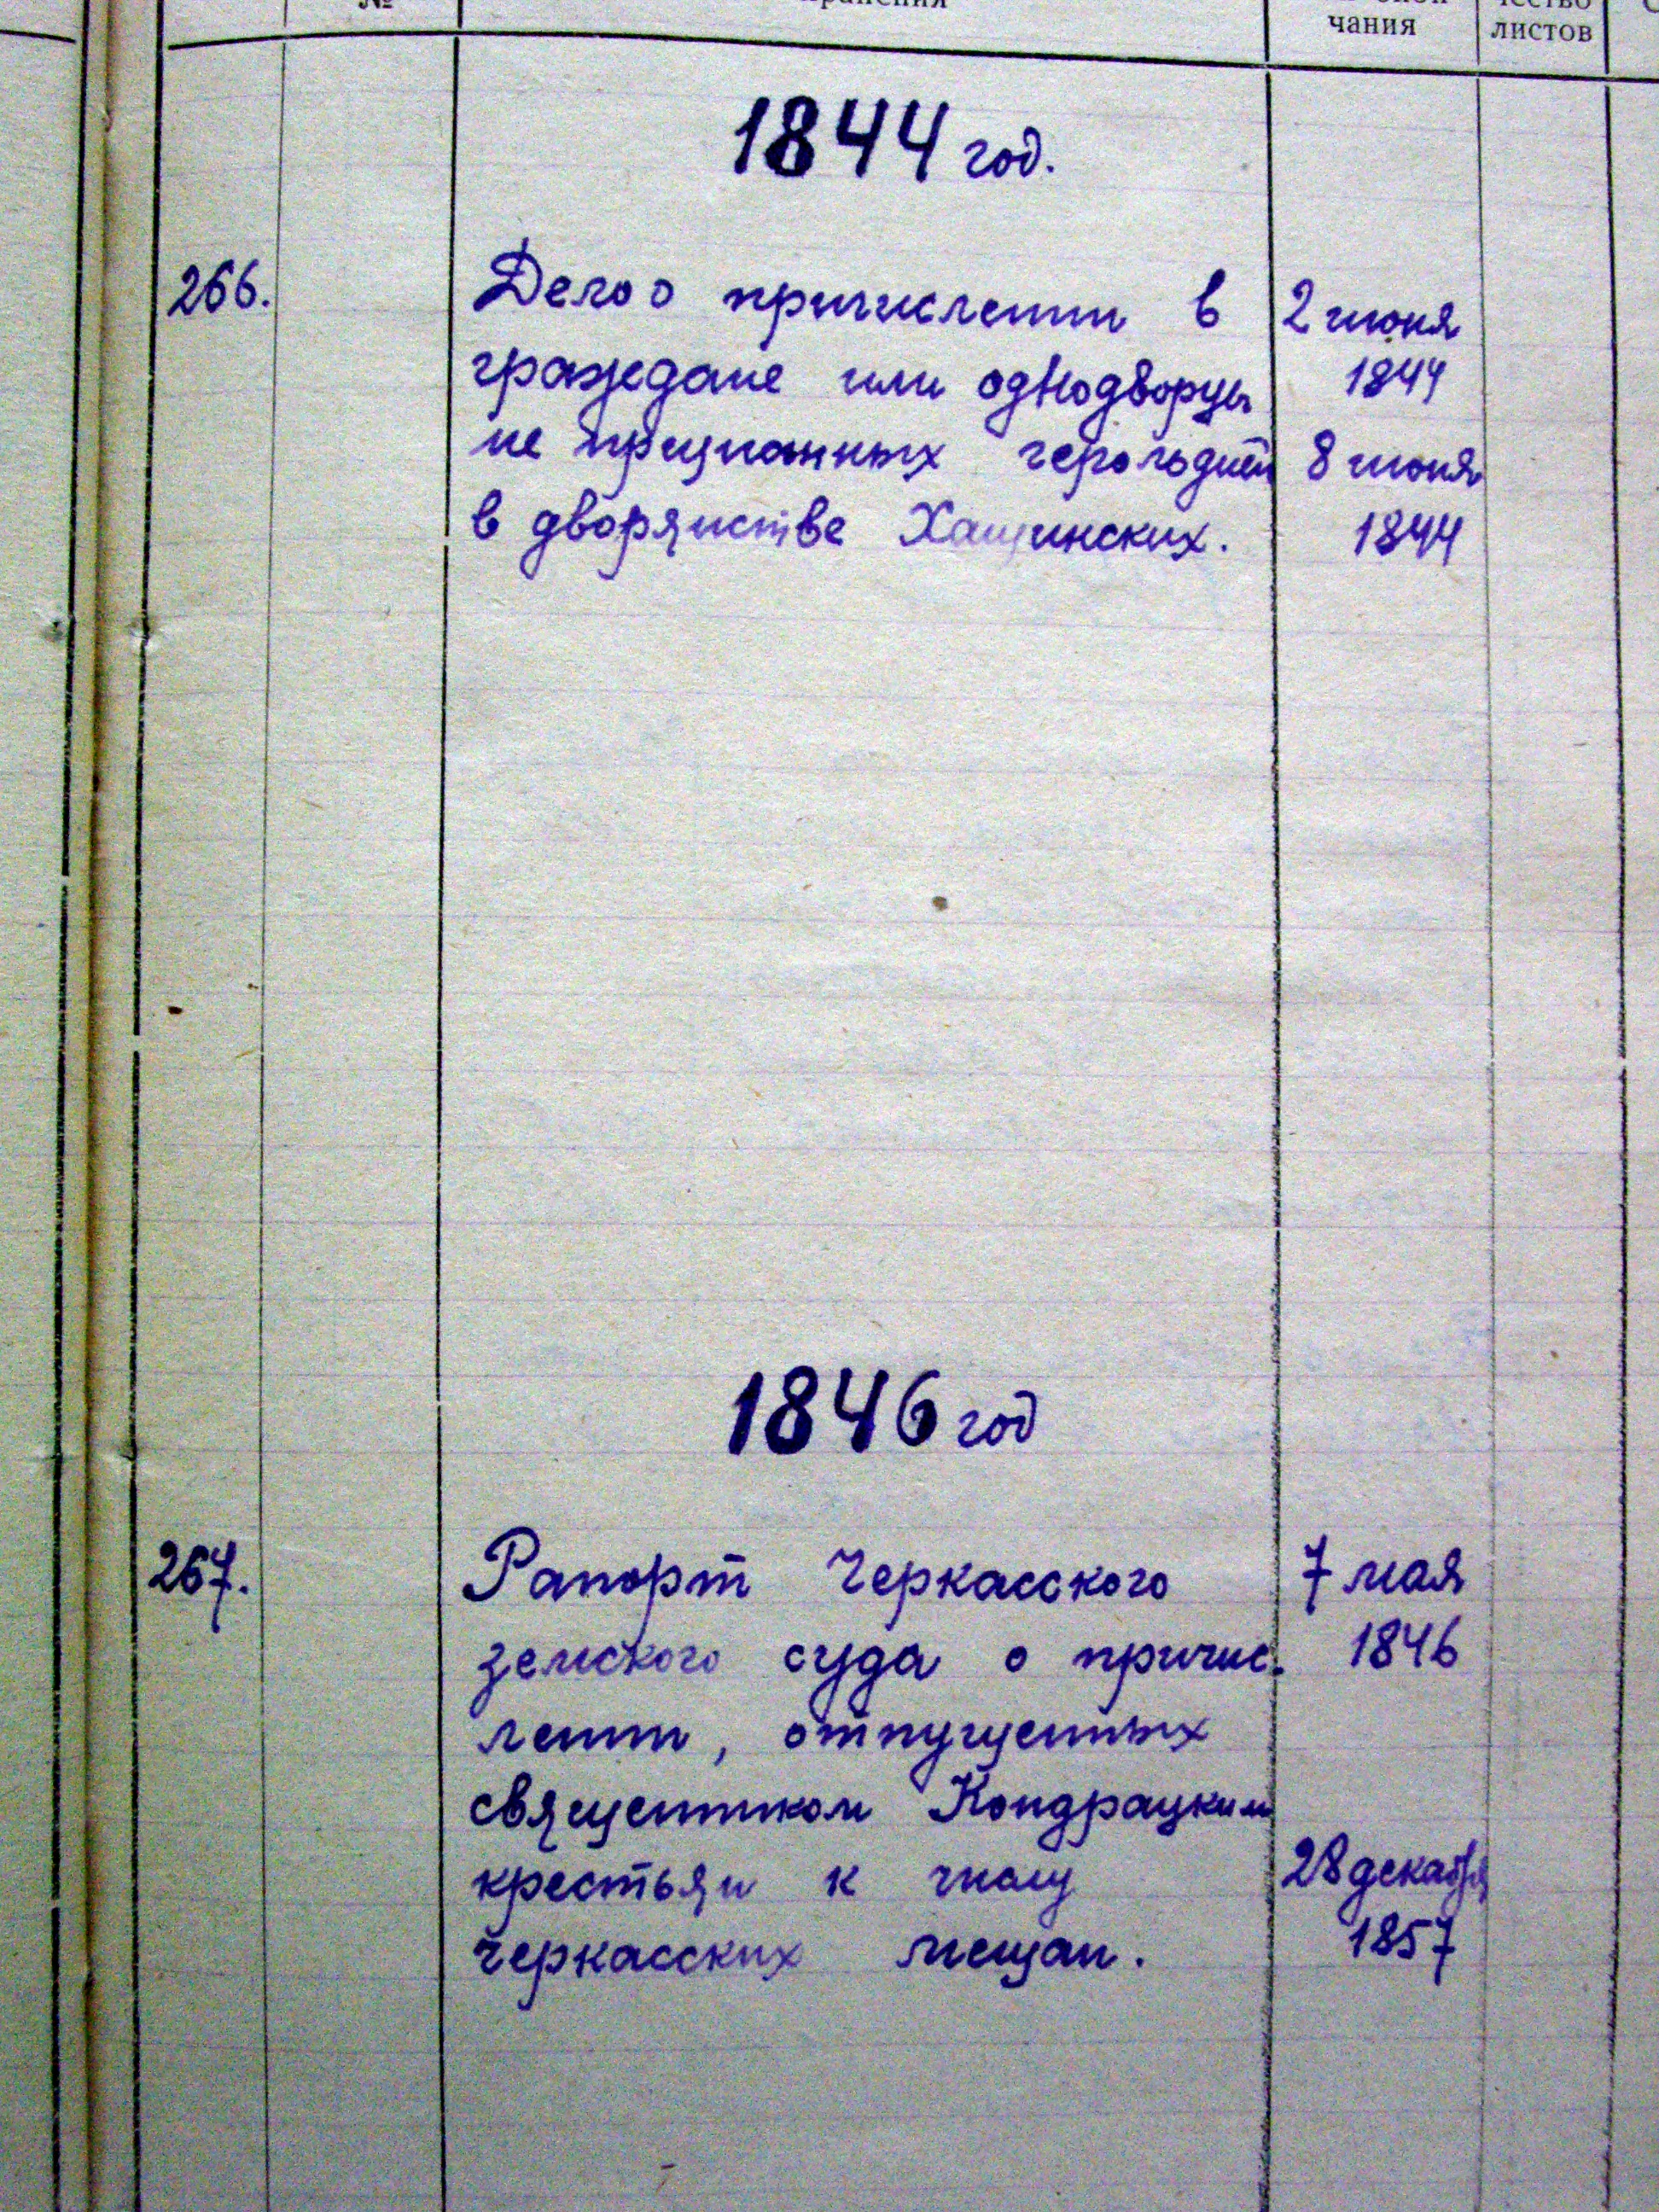 №
чания
листов
1844 год.
266.
Дело о причислении в
граждане или однодворцы
не признанных герольдией
в дворянстве Хащинских.
2 июня
1844
8 июня
1844
1846 год
267.
Рапорт Черкасского
земского суда о причис-
лении, отпущенных
священником Кондрацким
крестьян к числу
черкасских мещан.
7 мая
1846
28 декабря
1857